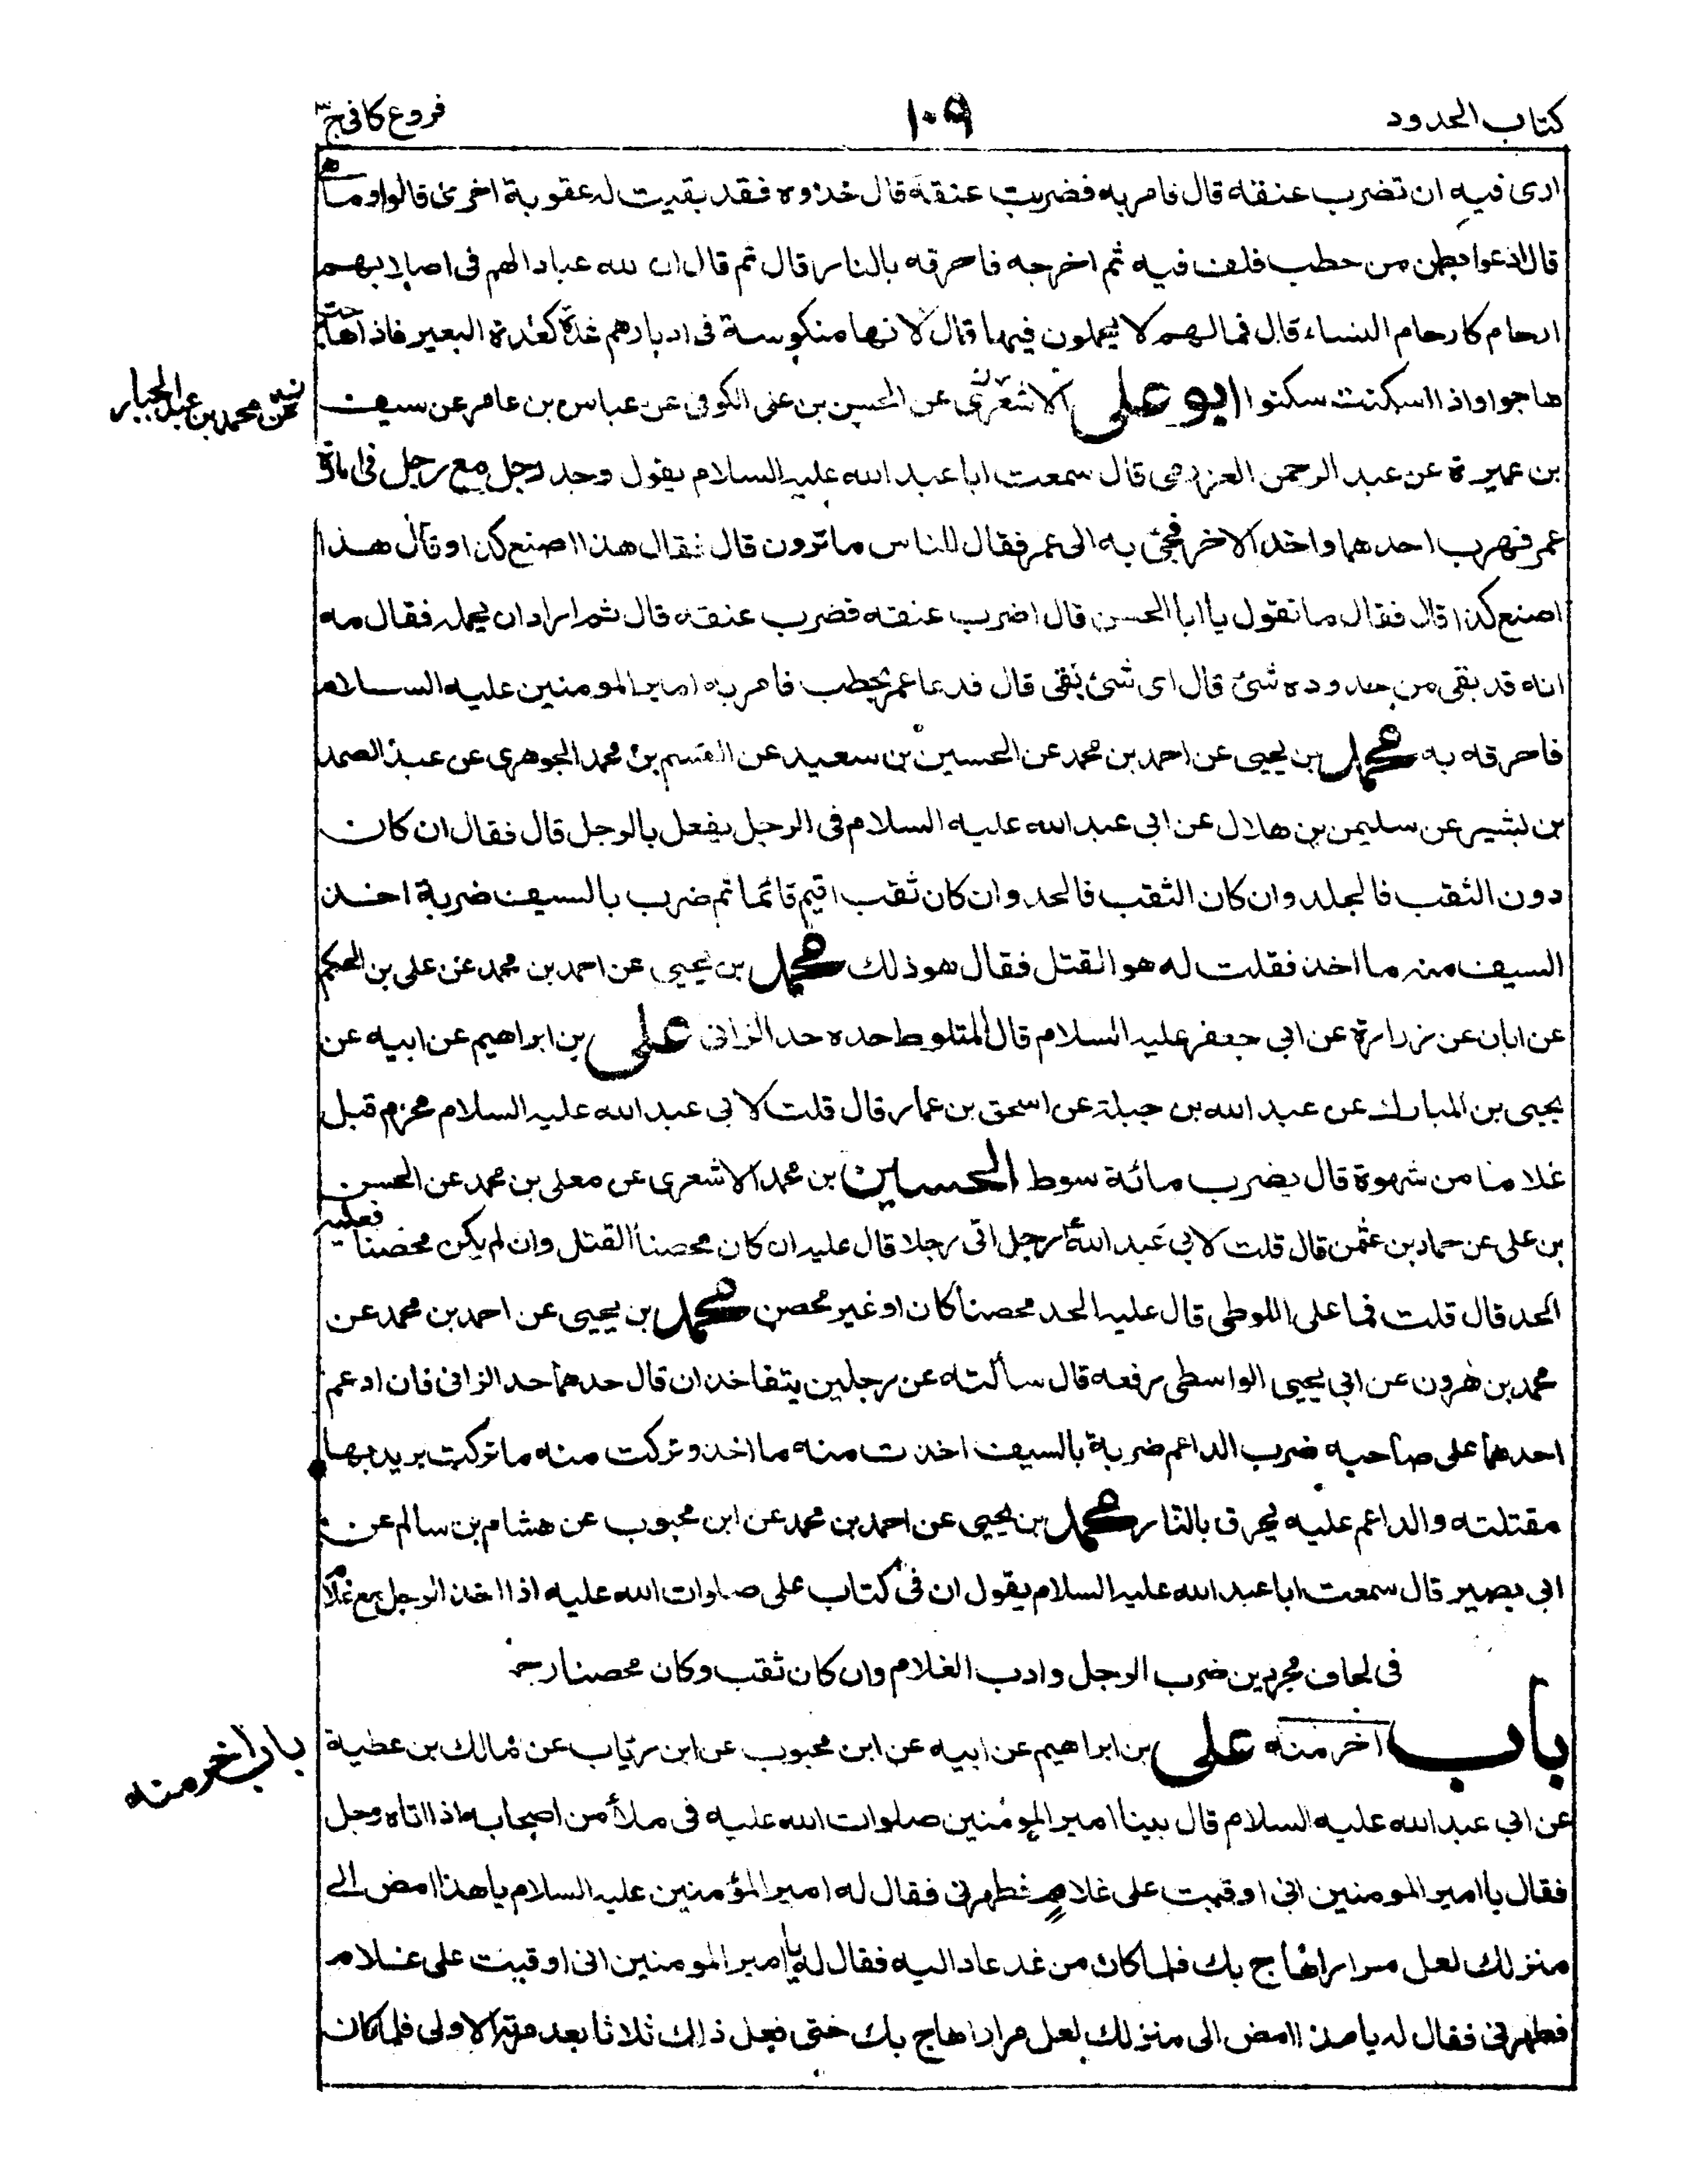 كتاب الحدود
١٠٩
فروع كافى ج٣
ارى فيه ان تضرب عنقه قال فامر به فضربت عنقه قال خذوه فقد بقيت له عقوبة اخرى قالوا وما هى
قال ادعوا بطن من حطب فلف فيه ثم اخرجه فاحرقه بالنار قال ثم قال ان لله عبادا لهم فى اصلابهم
ارحام كارحام النساء قال فما لهم لا يحملون فيها قال لانها منكوسة فى ادبارهم غدة كغدة البعير فاذا هاجت
هاجوا واذا سكنت سكنوا ابو على الاشعرى عن الحسن بن على الكوفى عن عباس بن عامر عن سيف
عن محمد بن عبد الجبار
بن عميرة عن عبد الرحمن العزرمى قال سمعت ابا عبد الله عليه السلام يقول وجد رجل مع رجل فى امارة
عمر فهرب احدهما واخذ الاخر فجئ به الى عمر فقال للناس ما ترون قال فقال هذا اصنع كذا وقال هذا
اصنع كذا قال فقال ما تقول يا ابا الحسن قال اضرب عنقه فضرب عنقه قال ثم اراد ان يحمله فقال مه
انه قد بقى من حدوده شئ قال اى شئ بقى قال فدعا عمر بحطب فامر به امير المومنين عليه السلام
فاحرقه به محمد بن يحيى عن احمد بن محمد عن الحسين بن سعيد عن القسم بن محمد الجوهرى عن عبد الصمد
بن بشير عن سليمن بن هلال عن ابى عبد الله عليه السلام فى الرجل يفعل بالرجل قال فقال ان كان
دون الثقب فالجلد وان كان الثقب فالحد وان كان ثقب اقيم قائما ثم ضرب بالسيف ضربة اخذ
السيف منه ما اخذ فقلت له هو القتل فقال هو ذلك محمد بن يحيى عن احمد بن محمد عن على بن الحكم
عن ابان عن زرارة عن ابى جعفر عليه السلام قال المتلوط حده حد الزانى على بن ابراهيم عن ابيه عن
يحيى بن المبارك عن عبد الله بن جبلة عن اسحق بن عمار قال قلت لابى عبد الله عليه السلام محرم قبل
غلاما من شهوة قال يضرب مائة سوط الحسين بن محمد الاشعرى عن معلى بن محمد عن الحسن
بن على عن حماد بن عثمن قال قلت لابى عبد الله ع رجل اتى رجلا قال عليه ان كان محصنا القتل وان لم يكن محصنا فعليه
الحد قال قلت فما على اللوطى قال عليه الحد محصنا كان او غير محصن محمد بن يحيى عن احمد بن محمد عن
محمد بن هرون عن ابى يحيى الواسطى رفعه قال سألته عن رجلين يتفاخذان قال حدهما حد الزانى فان ادعم
احدهما على صاحبه ضرب الداعم ضربة بالسيف اخذت منه ما اخذ وتركت منه ما تركت يريد بها
مقتلته والداعم عليه يحرق بالنار محمد بن يحيى عن احمد بن محمد عن ابن محبوب عن هشام بن سالم عن
ابى بصير قال سمعت ابا عبد الله عليه السلام يقول ان فى كتاب على صلوات الله عليه اذا اخذ الرجل مع غلام
فى لحاف مجردين ضرب الرجل وادب الغلام وان كان ثقب وكان محصنا رجم
باب اخر منه على بن ابراهيم عن ابيه عن ابن محبوب عن ابن رئاب عن مالك بن عطية
باب اخر منه
عن ابى عبد الله عليه السلام قال بينا امير المؤمنين صلوات الله عليه فى ملأ من اصحابه اذا اتاه رجل
فقال يا امير المومنين انى اوقبت على غلام فطهرنى فقال له امير المؤمنين عليه السلام يا هذا امض الى
منزلك لعل مرارا هاج بك فلما كان من غد عاد اليه فقال له يا امير المومنين انى اوقبت على غلام
فطهرنى فقال له يا هذا امض الى منزلك لعل مرارا هاج بك حتى فعل ذلك ثلاثا بعد مرته الاولى فلما كان